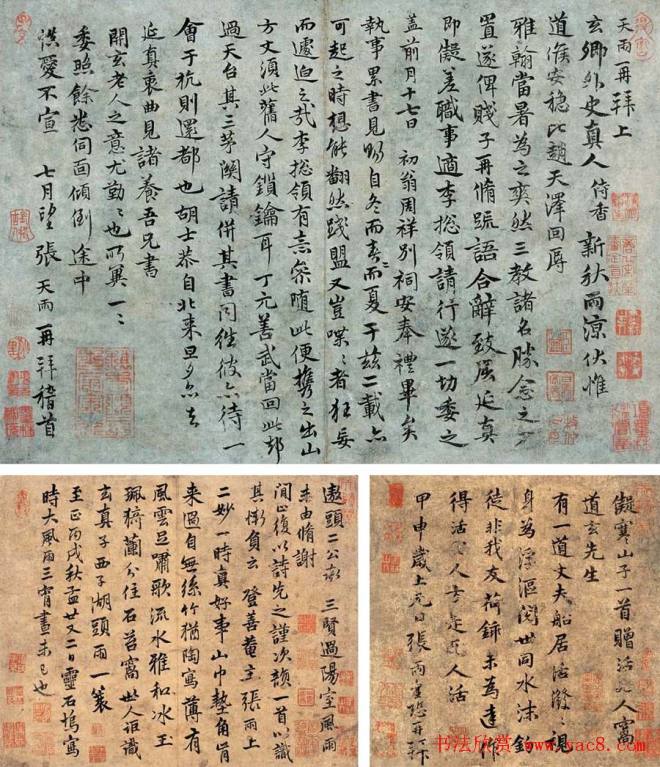 天雨再拜上
玄卿外史真人 侍香 新秋雨涼伏惟
道候安穩比趙天澤回辱
雅翰當暑為之爽然三教諸名勝念之
置遂俾賤子再脩疏語合辭致屈延真
即礙差職事適李總領請行遂一切委之
蓋前月十七日 初翁周祥別祠安奉禮畢矣
執事累書見賜自冬而春而夏于茲二載
可起之時想能翻然踐盟又豈喋喋者狂妄
而遽迫之哉李總領有
隨此便攜之出山
方丈須此舊人守鎖鑰耳丁元善武當回此
過天台其三茅闕請併其書問往彼亦待一
會于杭則還都也胡士恭自北來旦夕亦去
延真衷曲見諸養吾兄書
開玄老人之意尤勤勤也所冀一一
委照餘悉伺面傾倒途中
湛愛不宣 七月望 張天雨再拜稽首
遨頭二公 三賢過陽室風雨
未由脩謝
間止復以詩先之謹次韻一首以識
其慚負云 登善菴主張雨上
二妙一時真好事山巾墊角肯
來過自無絲竹猶陶寫薄有
風雲足嘯歌流水雅和冰玉
珮猗蘭分住石苔窩世人詎識
玄真子西子湖頭雨一蓑
至正丙戌秋孟廿又二日靈石塢寫
時大風雨三宵晝未已也
擬寒山子一首贈活死人窩
道玄先生
有一道丈夫船居活潑潑視
身為浮漚閱世同水沫釣
徒非我友荷鍤未為達作
得活死人方是死人活
甲申歲上元日張雨
再拜
书法欣赏 www.yac8.com